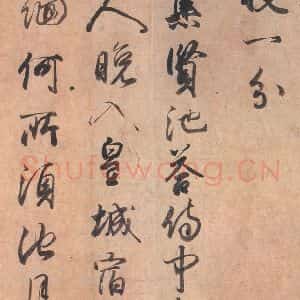 一分
集賢池答侍中
人晚入皇城宿
何所須池月
Shufawang.CN